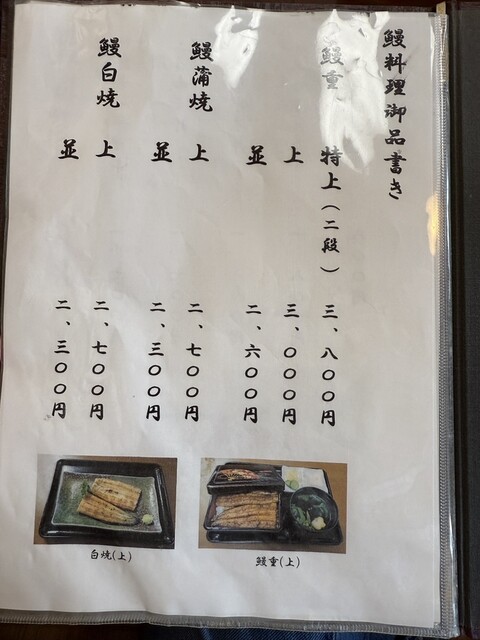 鰻料理御品書き
鰻重 特上(二段) 三、八〇〇円
上 三、〇〇〇円
並 二、六〇〇円
鰻蒲焼 上 二、七〇〇円
並 二、三〇〇円
鰻白焼 上 二、七〇〇円
並 二、三〇〇円
白焼(上)
鰻重(上)